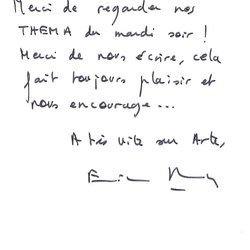 Merci de regarder nos
THEMA du mardi soir !
Merci de nous écrire, cela
fait toujours plaisir et
nous encourage...
A très vite sur Arte,